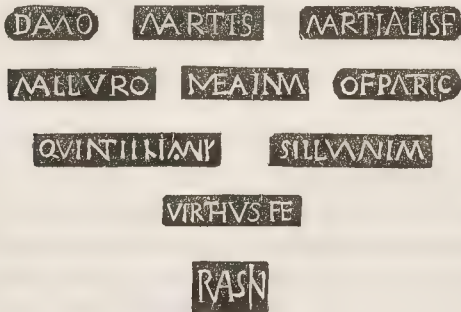 DAMO MARTIS MARTIALISF
MALLVRO MEAINM OFPATRIC
QVINTIINIANI SILLVANIM
VIRTHVS FE
RASN